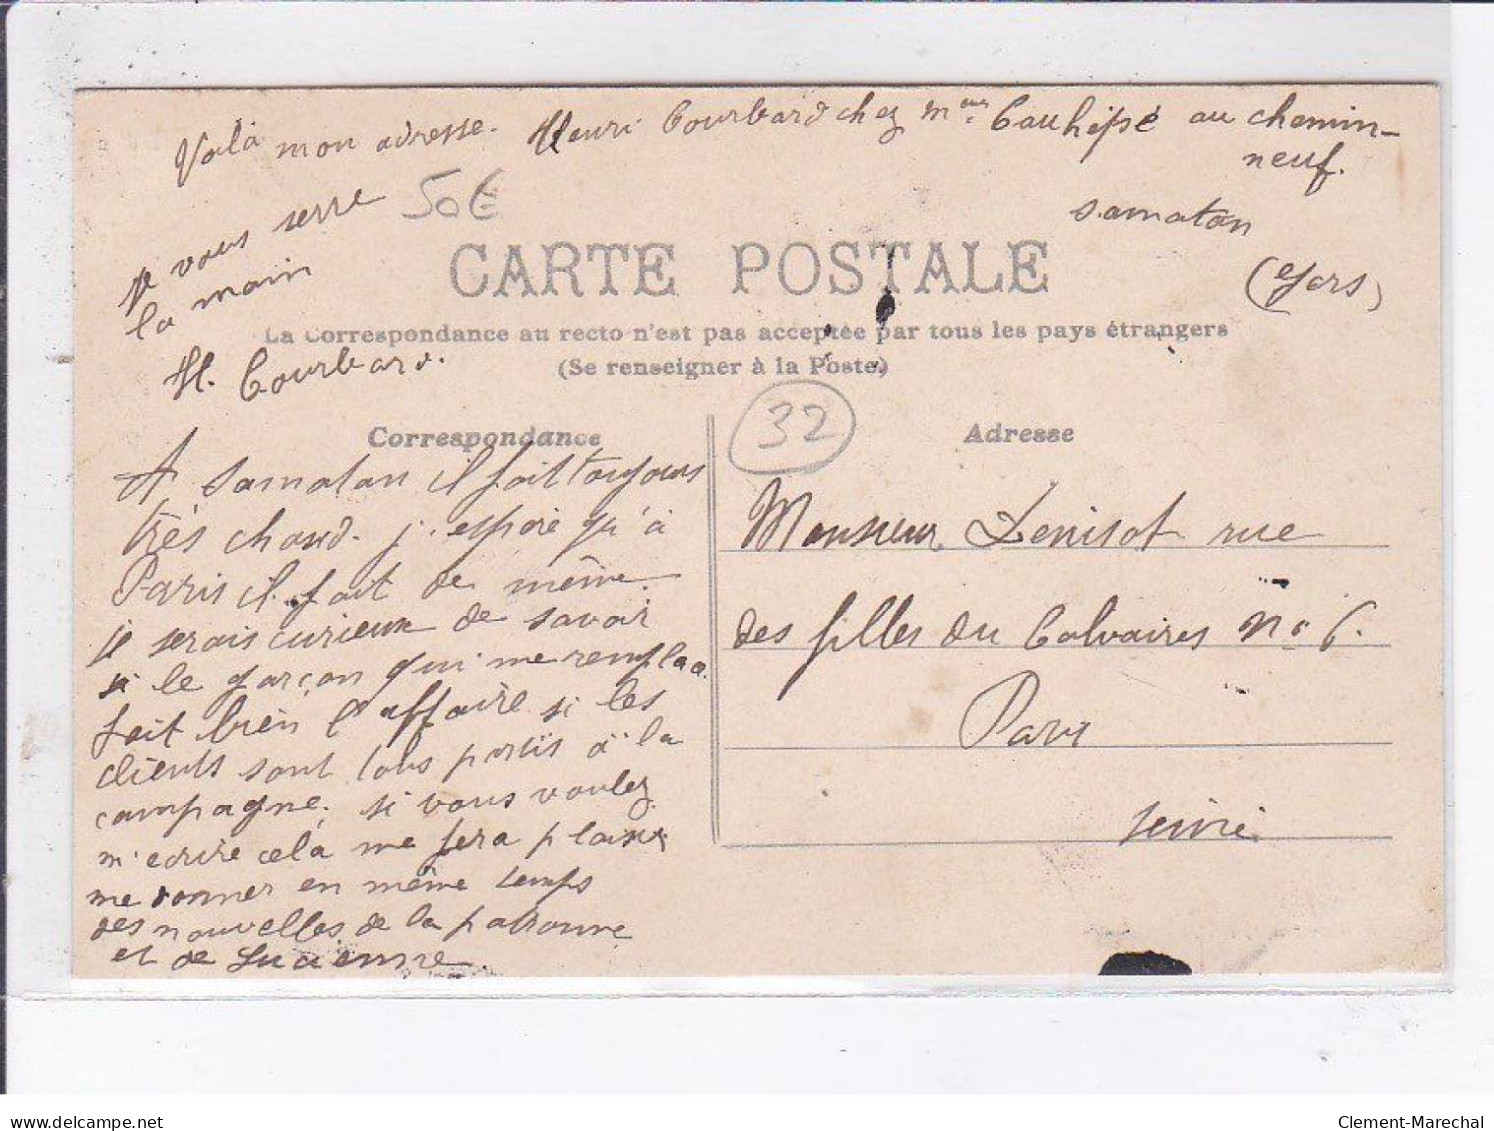 Voilà mon adresse. Henri Courbard chez Meur. Cauhépé au chemin-
neuf.
Samatan
(Gers)
je vous serre
la main
H. Courbard.
50€
CARTE POSTALE
La Correspondance au recto n'est pas acceptée par tous les pays étrangers
(Se renseigner à la Poste)
32
Correspondance
A Samatan il fait toujours
très chaud. j'espère qu'à
Paris il fait de même.
je serais curieux de savoir
si le garçon qui me remplaa.
fait bien l'affaire si les
clients sont tous partis à la
campagne. si vous voulez
m'ecrire cela me fera plaisir
me donner en même temps
des nouvelles de la patronne
et de Lucienne.
Adresse
Monsieur Denisot rue
des filles du Calvaires No 6.
Paris
Seine
delcampe.net
Clement-Marechal